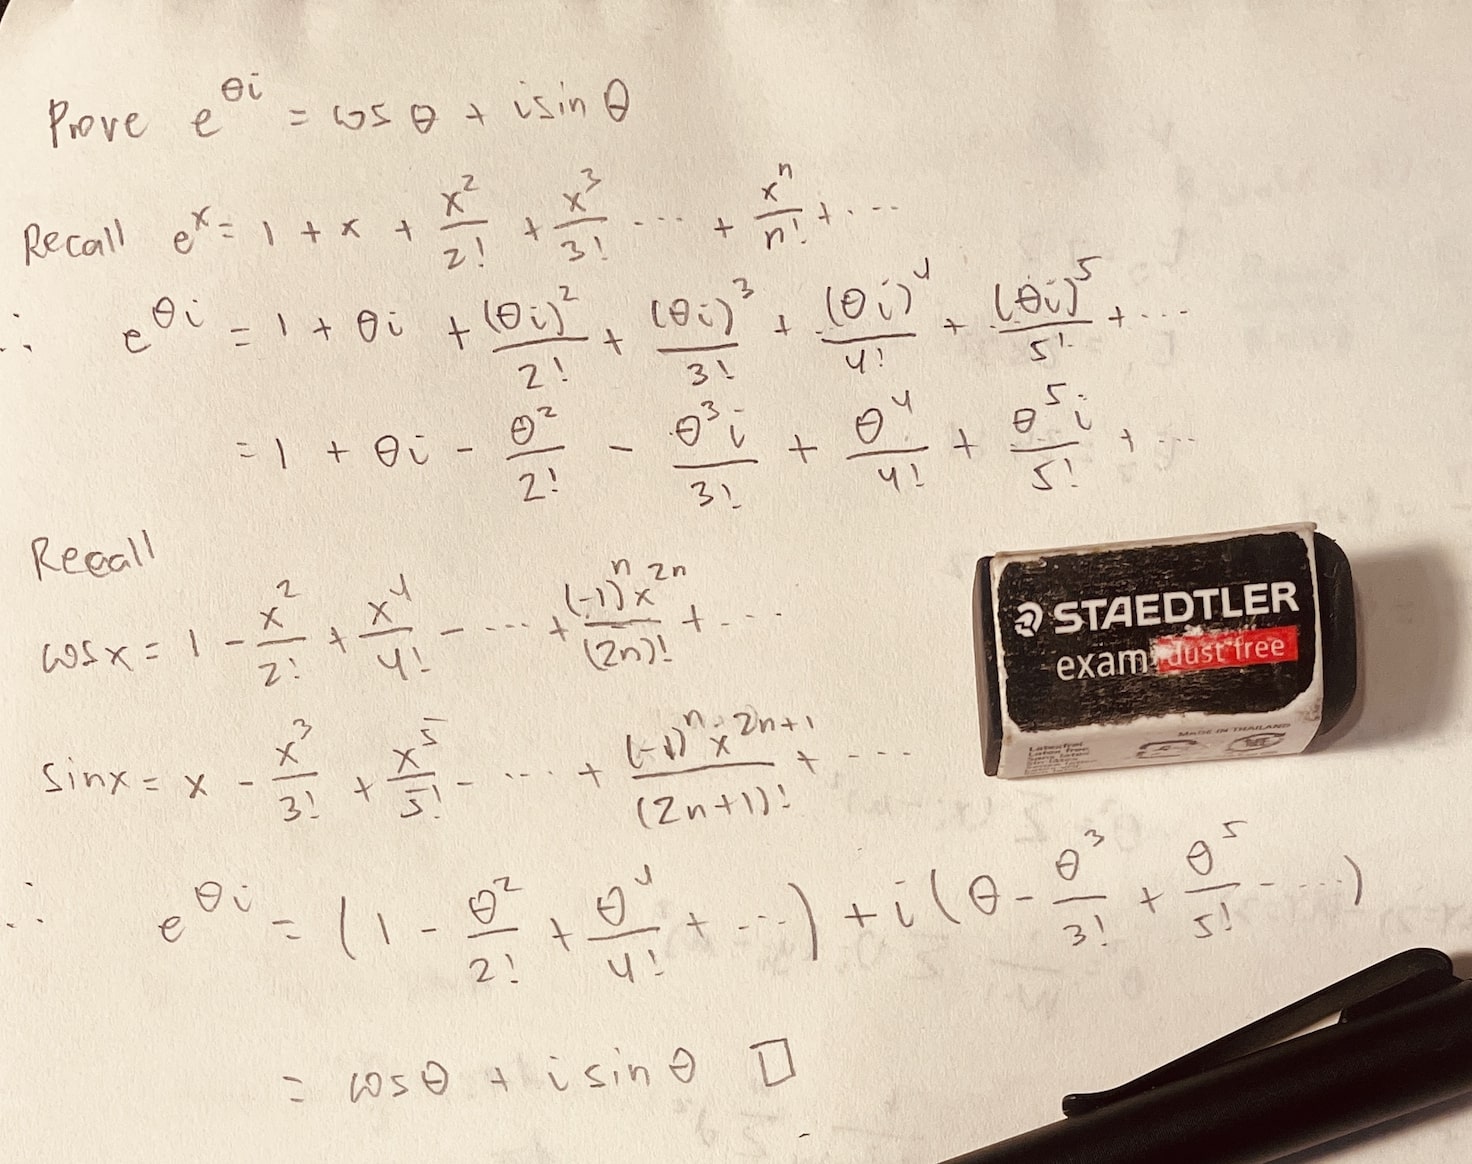 Prove e^{θi} = cos θ + i sin θ
Recall e^x = 1 + x + x^2/2! + x^3/3! ... + x^n/n! + ...
∴ e^{θi} = 1 + θi + (θi)^2/2! + (θi)^3/3! + (θi)^4/4! + (θi)^5/5! + ...
= 1 + θi - θ^2/2! - θ^3 i/3! + θ^4/4! + θ^5 i/5! + ...
Recall
cos x = 1 - x^2/2! + x^4/4! - ... + (-1)^n x^{2n}/(2n)! + ...
sin x = x - x^3/3! + x^5/5! - ... + (-1)^n x^{2n+1}/(2n+1)! + ...
∴ e^{θi} = (1 - θ^2/2! + θ^4/4! + ...) + i(θ - θ^3/3! + θ^5/5! - ...)
= cos θ + i sin θ □
STAEDTLER
exam dust free
MADE IN THAILAND
Latex free